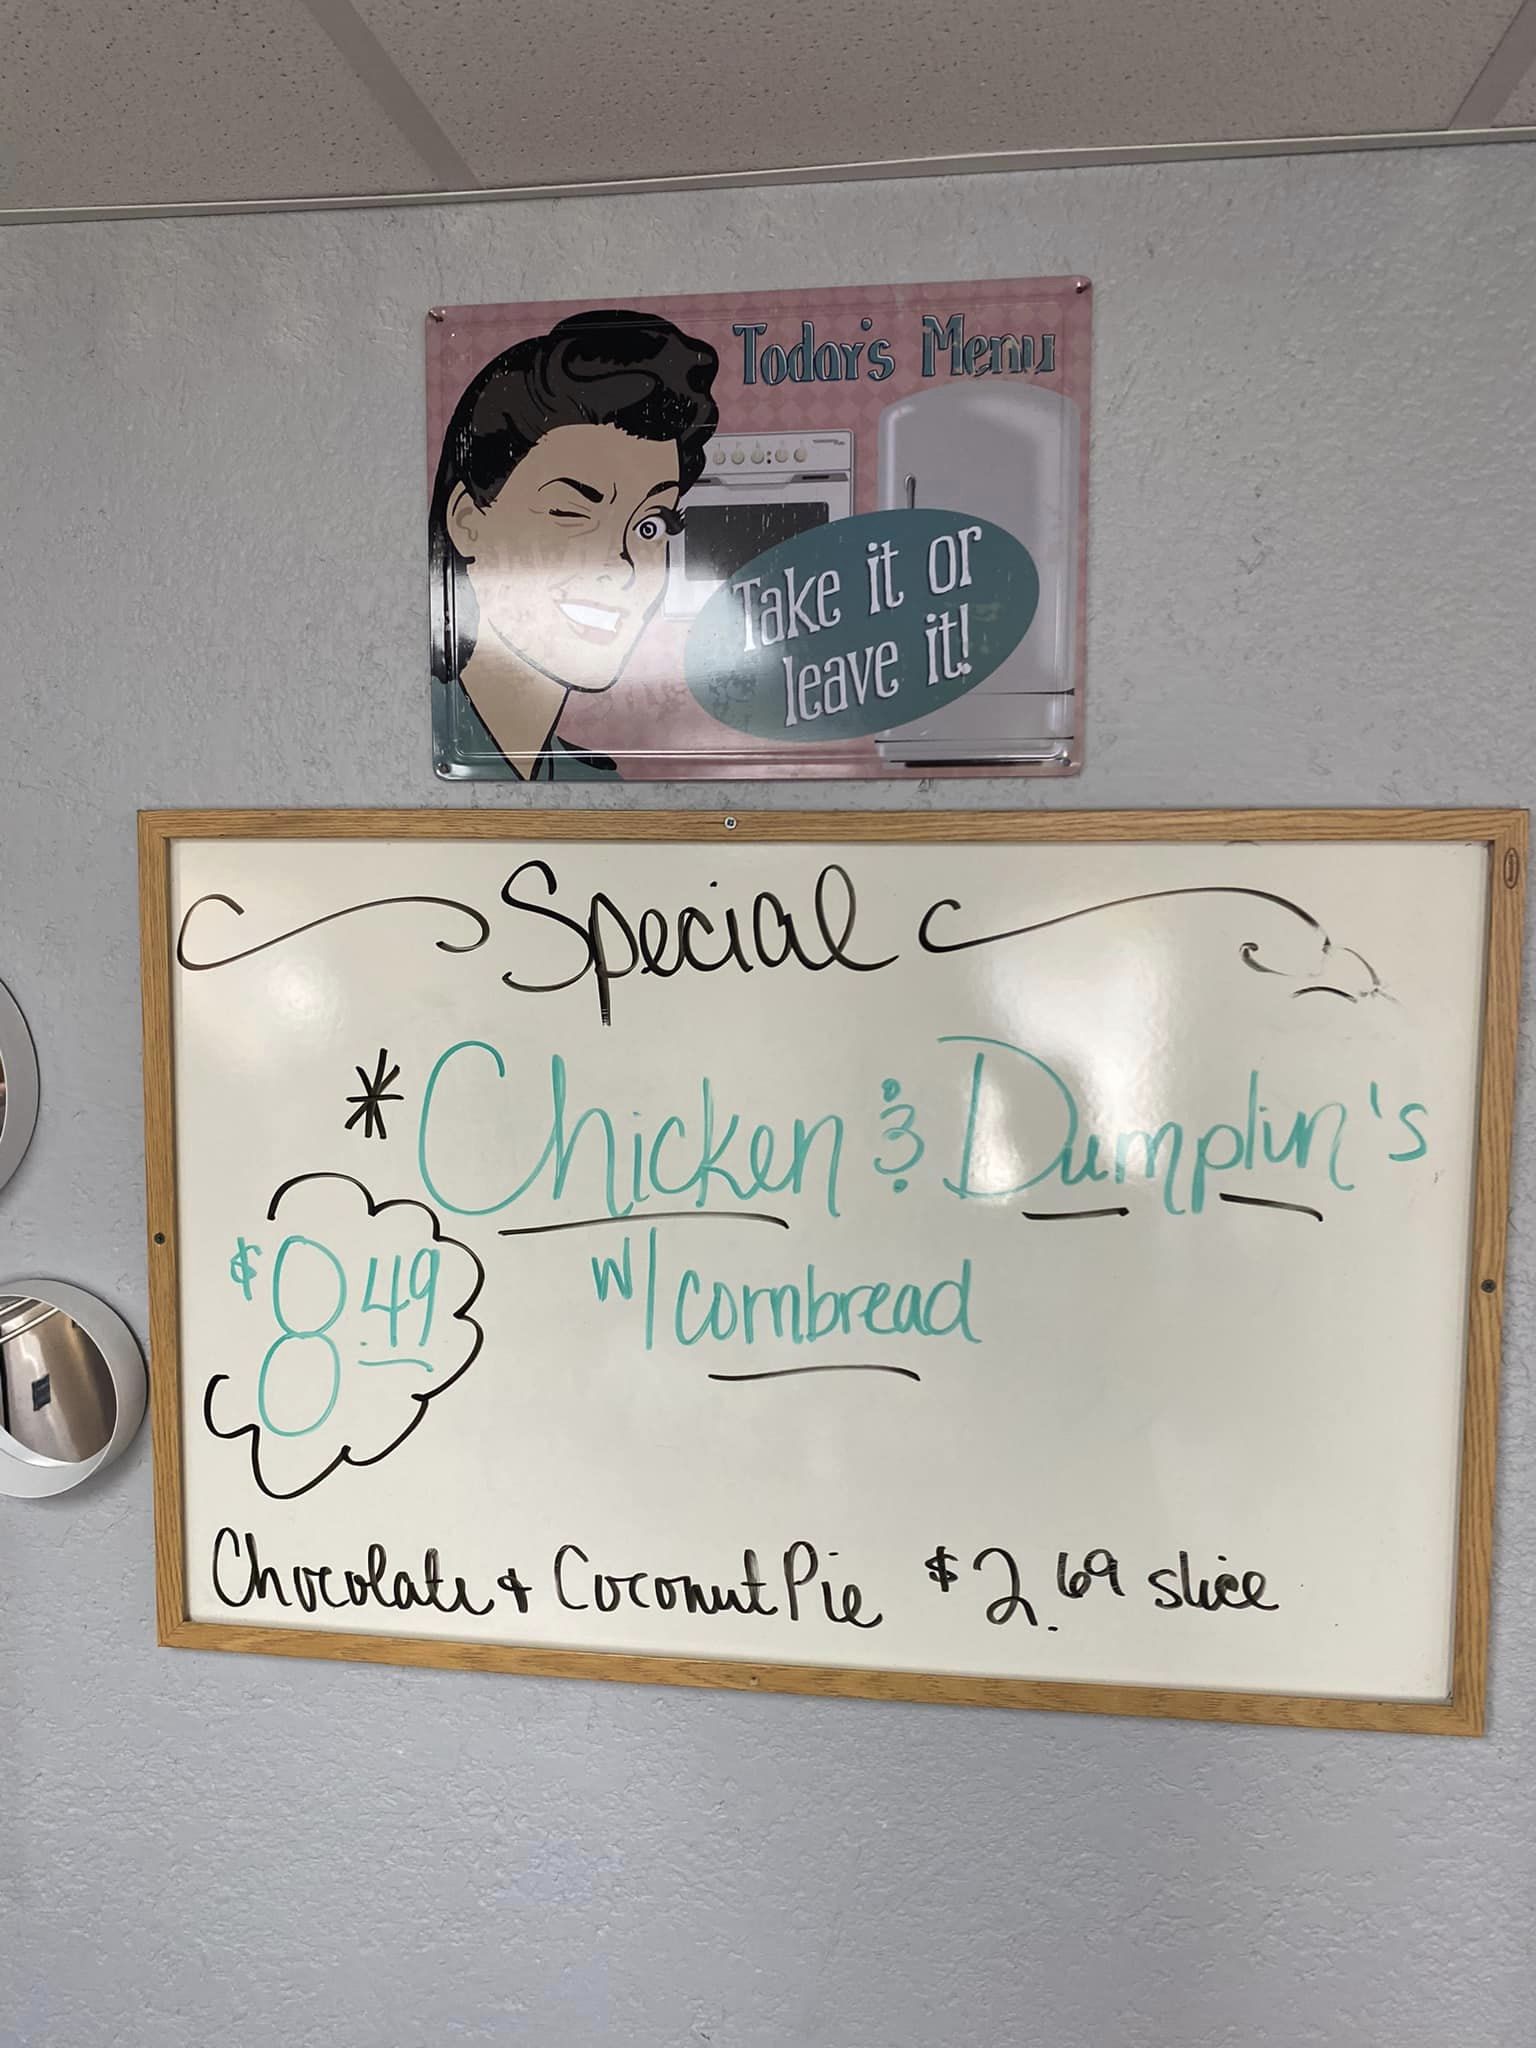 Today's Menu
Take it or
leave it!
Special
* Chicken & Dumplin's
$8.49
w/ cornbread
Chocolate & Coconut Pie $2.69 slice